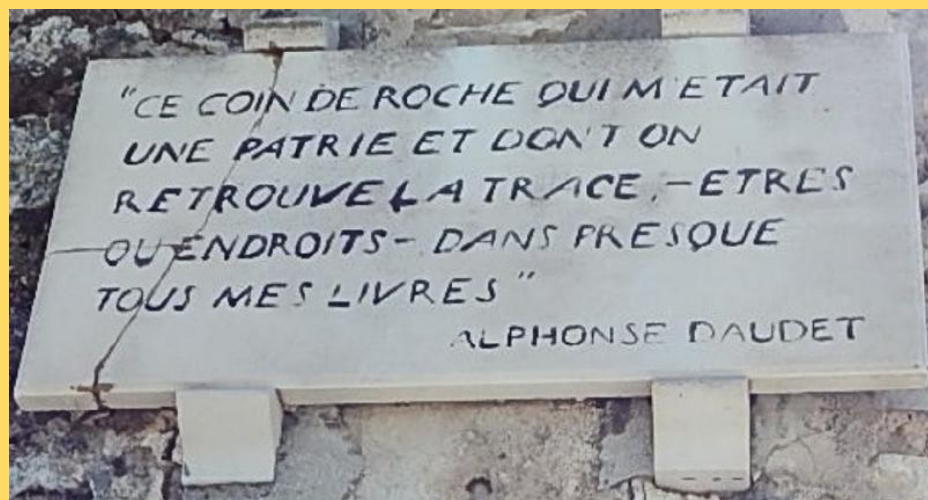 "CE COIN DE ROCHE QUI M'ETAIT
UNE PATRIE ET DONT ON
RETROUVE LA TRACE, - ETRES
OU ENDROITS - DANS PRESQUE
TOUS MES LIVRES"
ALPHONSE DAUDET